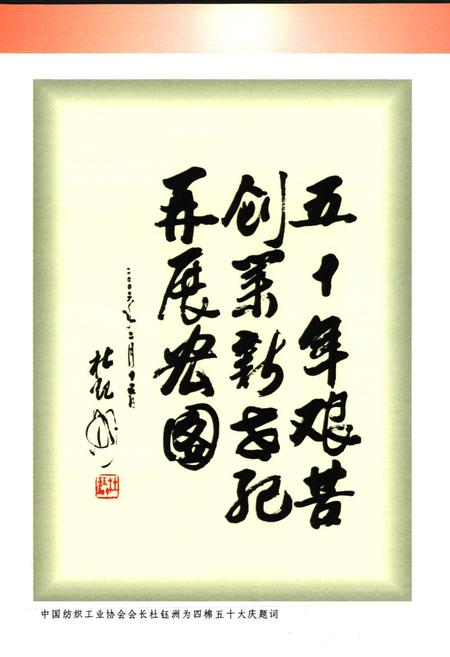 五十年艰苦
创业新世纪
再展宏图
二〇〇六年二月十五日
杜钰洲
中国纺织工业协会会长杜钰洲为四棉五十大庆题词